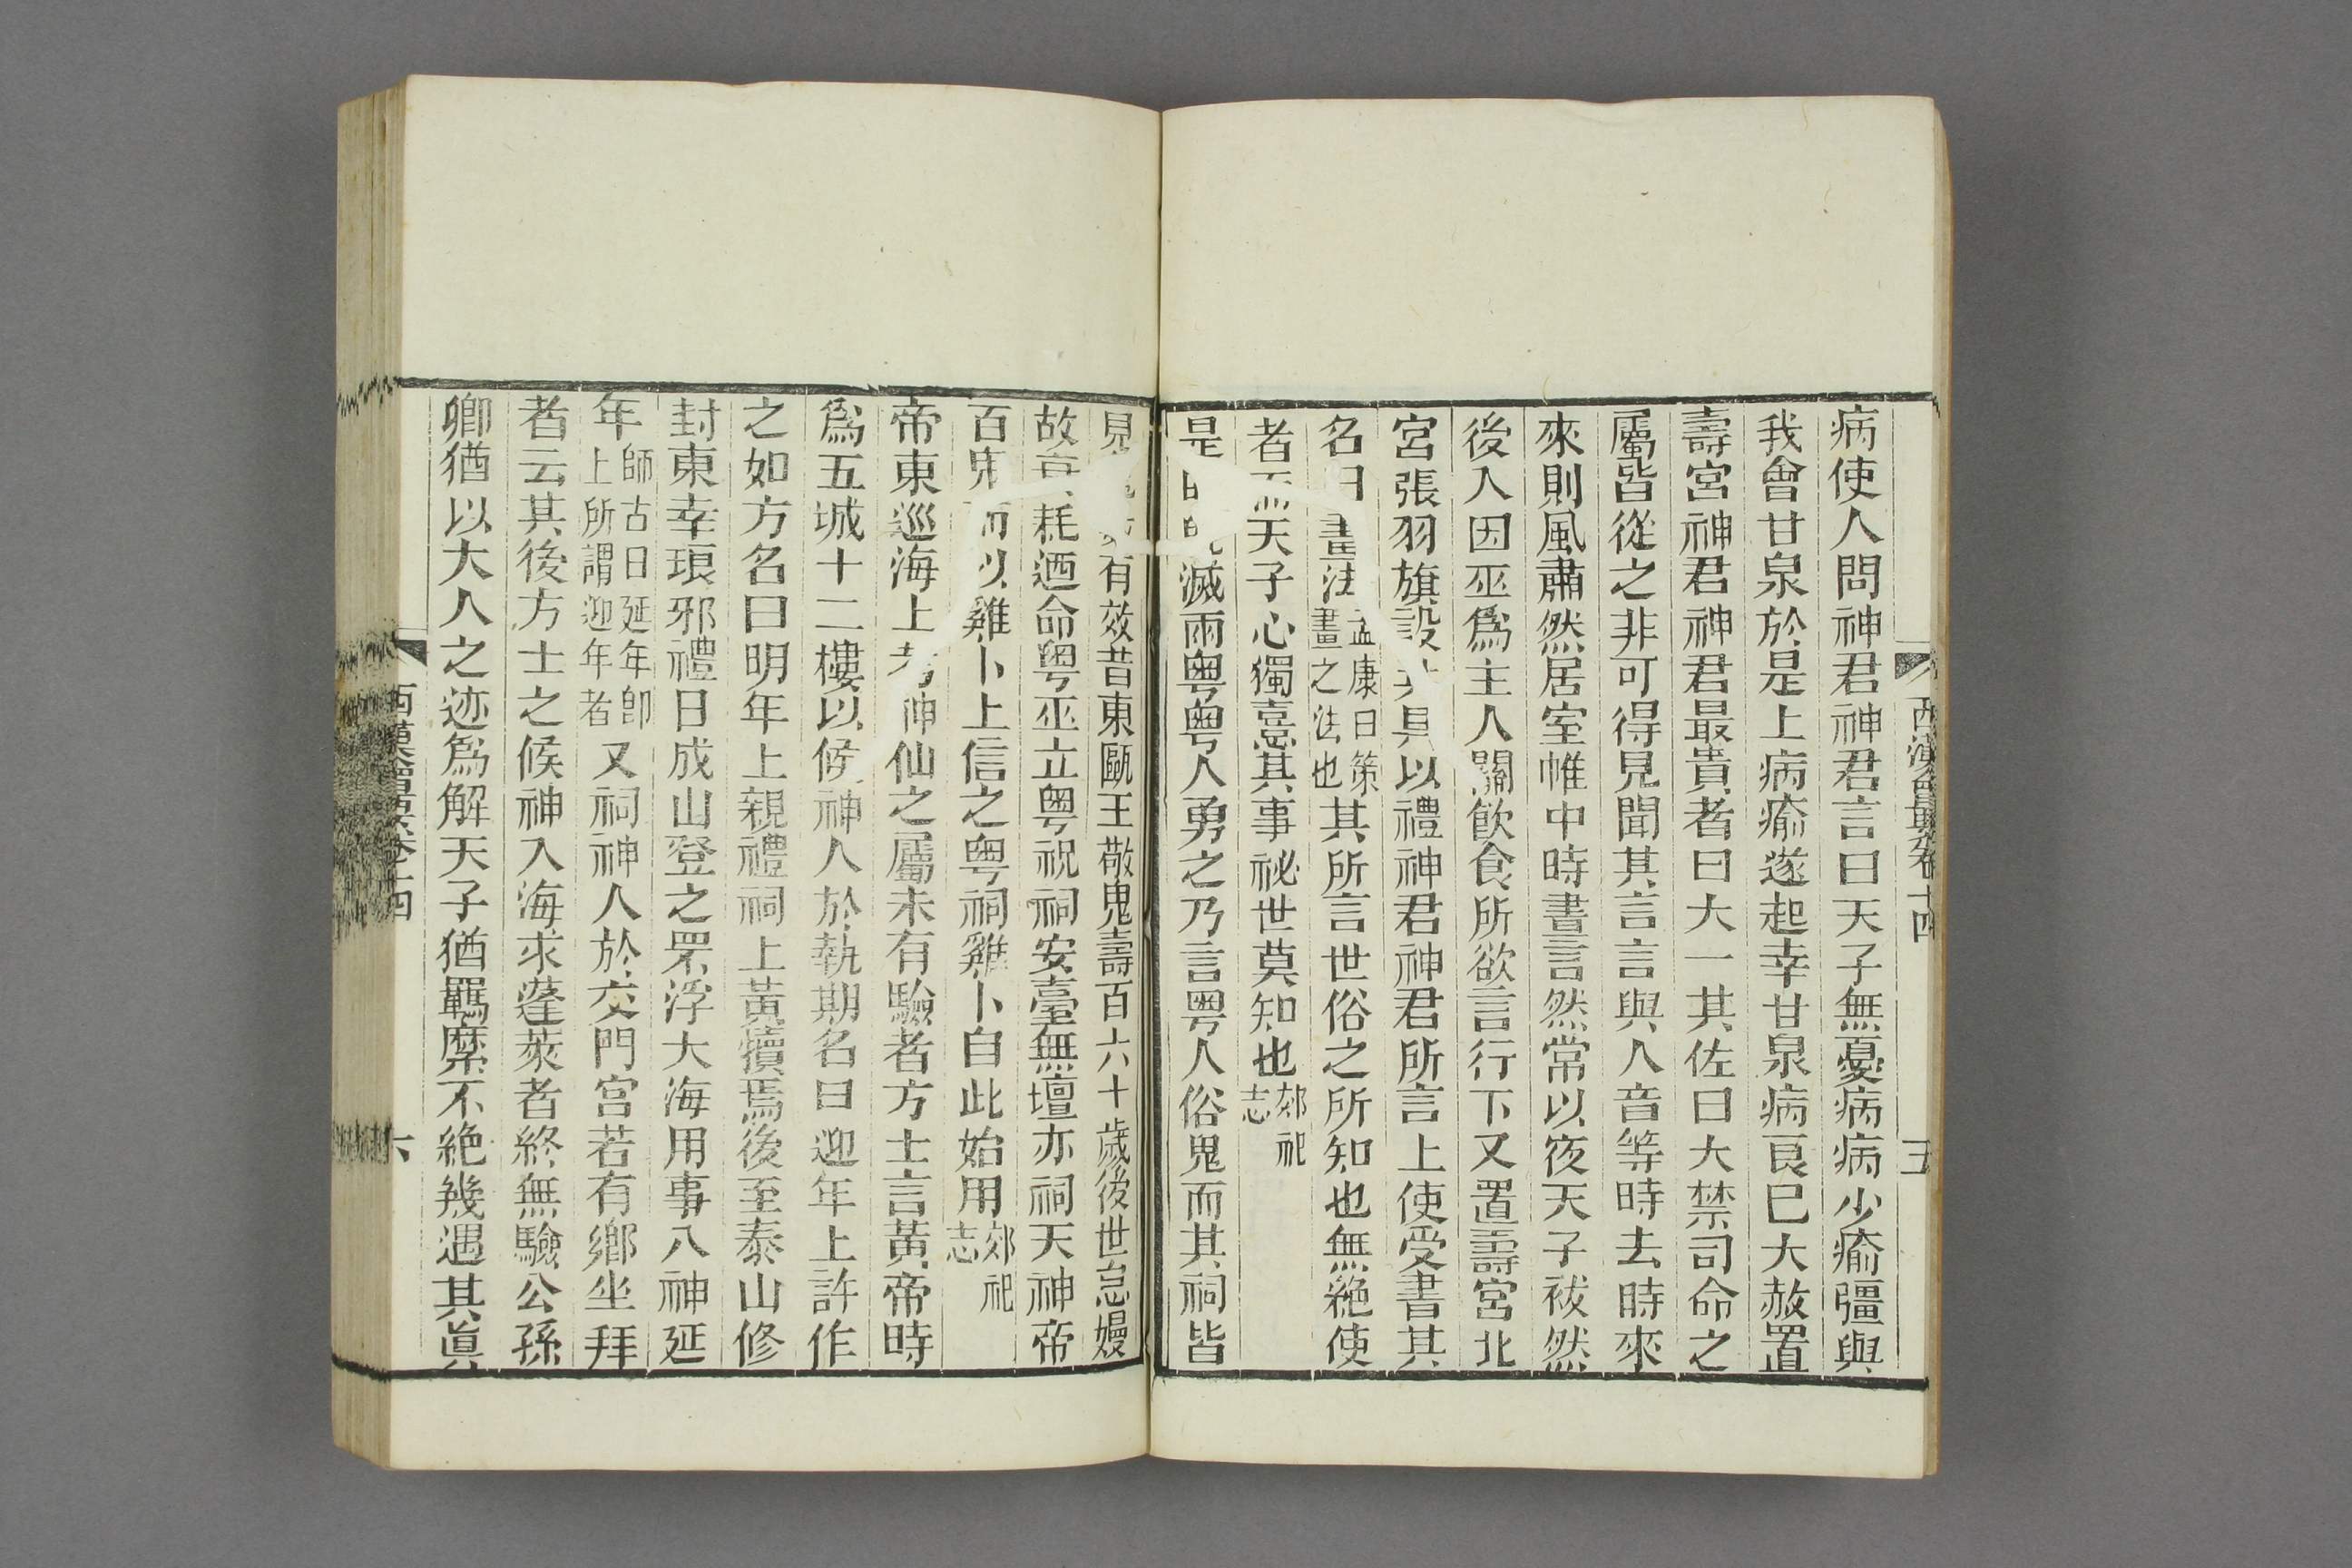 西漢會要卷十四
五
病使人問神君神君言曰天子無憂病病少瘉彊與
我會甘泉於是上病瘉遂起幸甘泉病良已大赦置
壽宮神君神君最貴者曰大一其佐曰大禁司命之
屬皆從之非可得見聞其言言與人音等時去時來
來則風肅然居室帷中時晝言然常以夜天子祓然
後入因巫爲主人關飮食所欲言行下又置壽宮北
宮張羽旗設共具以禮神君神君所言上使受書其
名曰畫法孟康曰策畫之法也其所言世俗之所知也無絶使
者而天子心獨憙其事祕世莫知也郊祀志
是時既滅兩粤粤人勇之乃言粤人俗鬼而其祠皆
見鬼數有效昔東甌王敬鬼壽百六十歲後世怠嫚
故衰耗迺命粤巫立粤祝祠安臺無壇亦祠天神帝
百鬼而以雞卜上信之粤祠雞卜自此始用郊祀志
帝東巡海上考神仙之屬未有驗者方士言黃帝時
爲五城十二樓以候神人於執期名曰迎年上許作
之如方名曰明年上親禮祠上黃犢焉後至泰山修
封東幸琅邪禮日成山登之罘浮大海用事八神延
年師古曰延年卽上所謂迎年者又祠神人於交門宮若有鄉坐拜
者云其後方士之候神入海求蓬萊者終無驗公孫
卿猶以大人之迹爲解天子猶羈縻不絶幾遇其眞
西漢會要卷十四
六